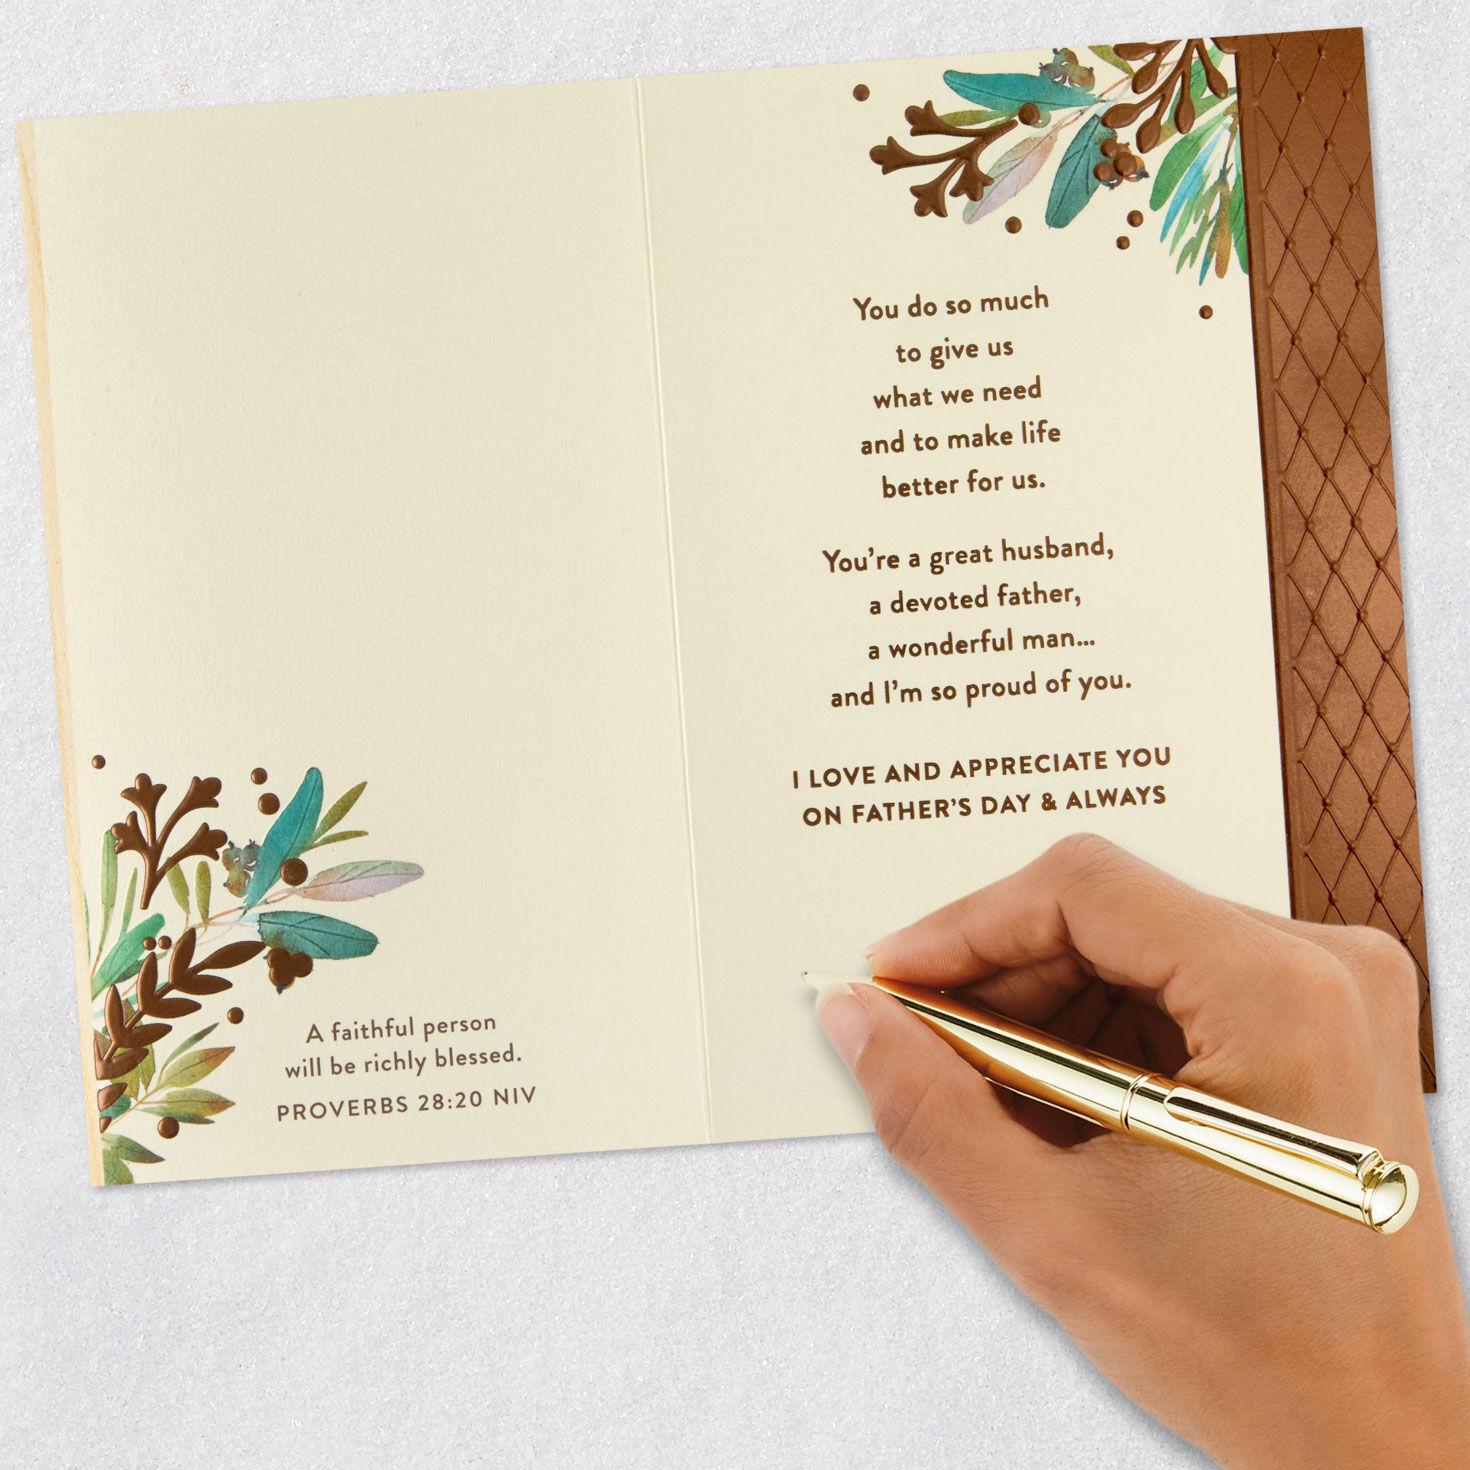 A faithful person
will be richly blessed.
PROVERBS 28:20 NIV
You do so much
to give us
what we need
and to make life
better for us.
You're a great husband,
a devoted father,
a wonderful man...
and I'm so proud of you.
I LOVE AND APPRECIATE YOU
ON FATHER'S DAY & ALWAYS